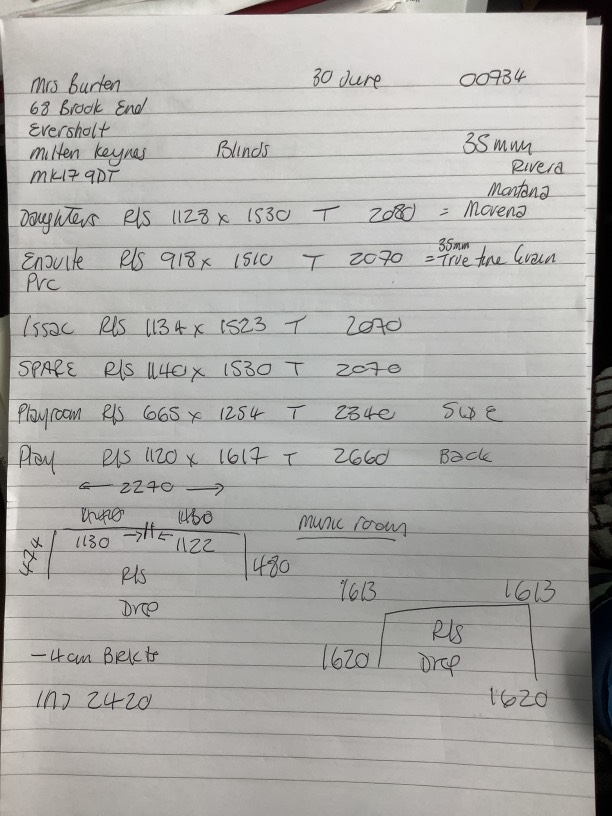 Mrs Burten 30 June 00934
68 Brook End
Eversholt
Milten Keynes Blinds 35mm
MK17 9DT Rivera
Montana
Daughters R/S 1128 x 1530 T 2080 = Movena
Ensuite R/S 918 x 1510 T 2070 = 35mm True tone Grain
PVC
Issac R/S 1134 x 1523 T 2070
SPARE R/S 1140 x 1530 T 2070
Playroom R/S 665 x 1254 T 2340 SIDE
Play R/S 1120 x 1617 T 2660 Back
← 2270 →
1480 music room
474 1130 →H← 1122 480
R/S
Drop
1613 1613
R/S
1620 Drop
1620
-4cm Brkts
IN) 2420